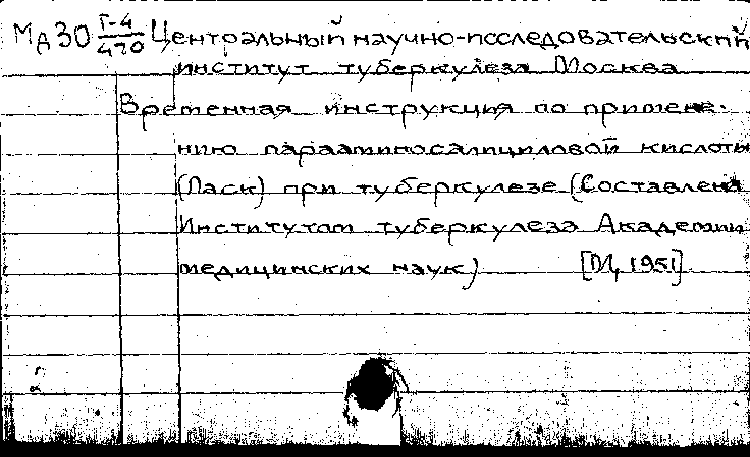 Мд30 Г-4/470 Центральный научно-исследовательский
институт туберкулеза Москва
Временная инструкция по примене-
нию парааминосалициловой кислоты
(Паск) при туберкулезе (Составлена
Институтом туберкулеза Академии
медицинских наук) [М, 1951]